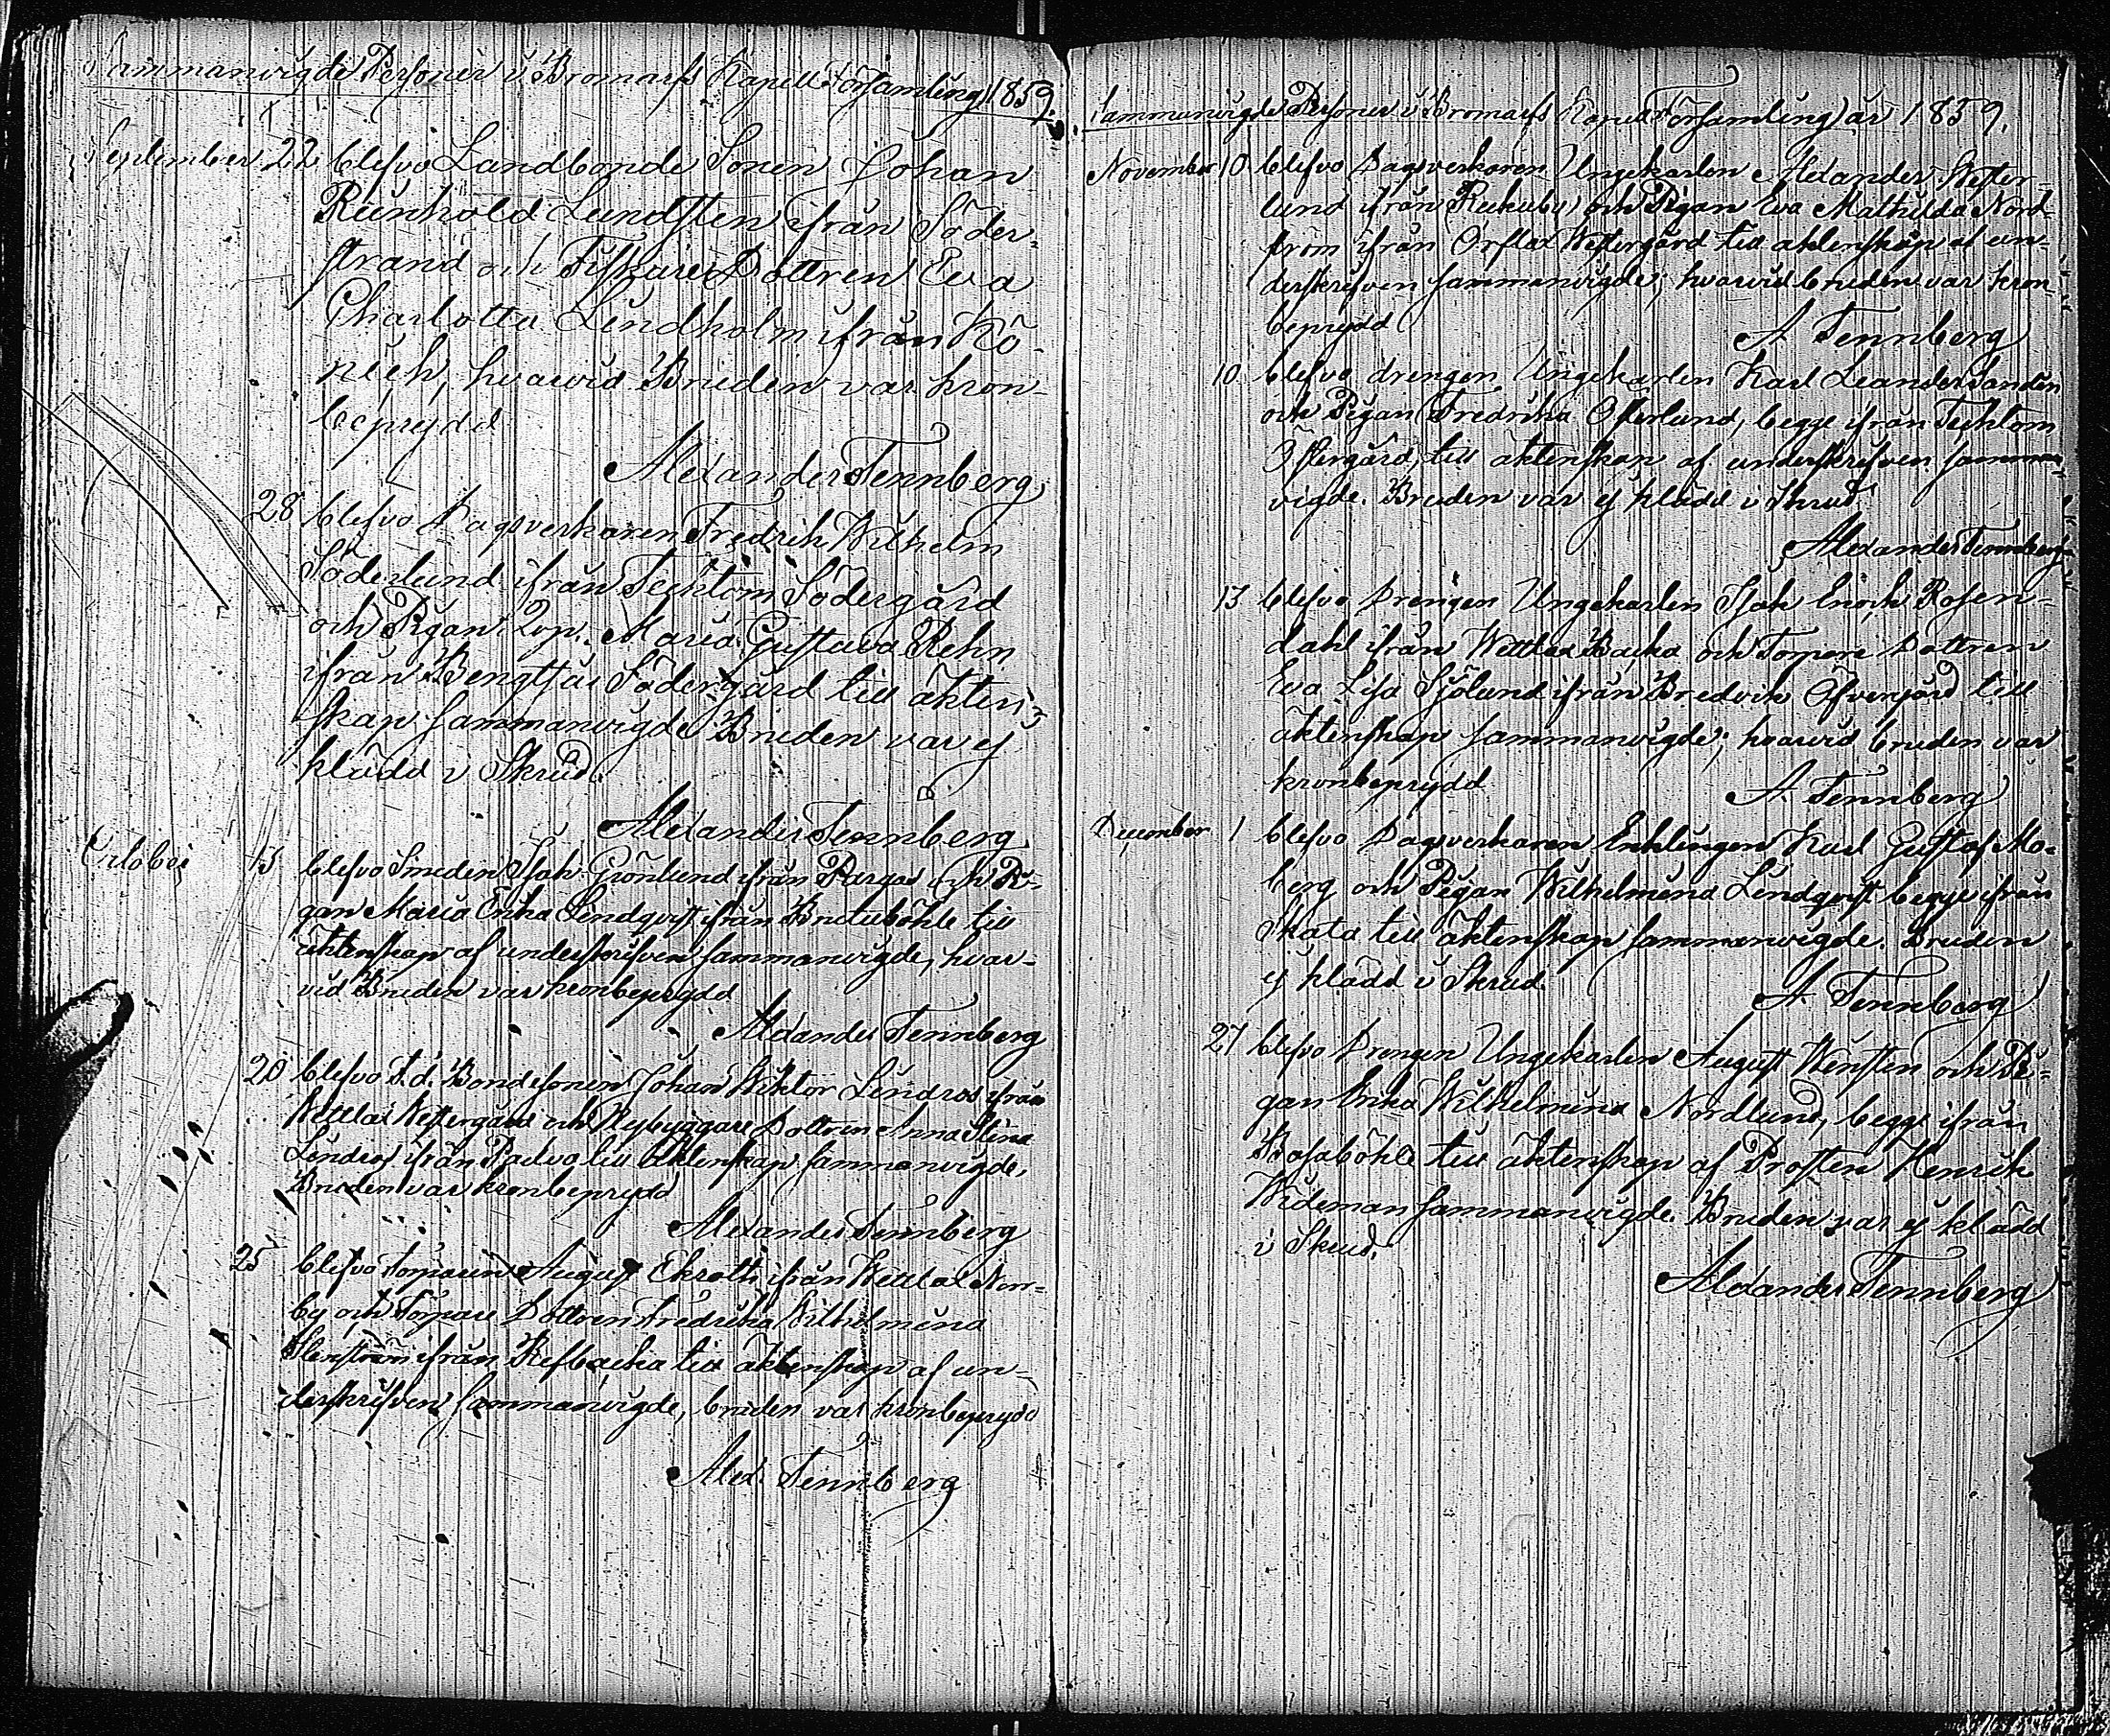 Sammanvigde Personer i Bromarfs Kapell Församling 1859.
September 22 blefvo Landbonde Sonen Johan
Reinhold Lundsten ifrån Söder-
strand och Fiskare Dottren Eva
Charlotta Lindholm ifrån Kö-
nick, hvarvid Bruden var kron-
beprydd
Alexander Tennberg
28 blefvo Dagsverkaren Fredrik Wilhelm
Söderlund ifrån Tecktom Södergård
och Pigan Maria Gustava Rehn
ifrån Bengtsår Södergård till äkten-
skap sammanvigde. Bruden var ej
klädd i Skrud.
Alexander Tennberg
October 13 blefvo Smeden Isak Grönlund ifrån Pargas och Pi-
gan Maria Erika Lindqvist ifrån Bruduböhle till
äktenskap af underskrifven sammanvigde, hvar-
vid Bruden var kronbeprydd
Alexander Tennberg
20 blefvo F.d. Bondesonen Johan Wiktor Lindros ifrån
Wettlax Westergård och Nybyggare Dottren Anna Stina
Lindros ifrån Padva till äktenskap sammanvigde,
Bruden var kronbeprydd
Alexander Tennberg
25 blefvo Torparen August Ekroth ifrån Wettlax Nor-
by och Torpare Dottren Fredrika Wilhelmina
Stenström ifrån Refbacka till äktenskap af un-
derskrifven sammanvigde, bruden var kronbeprydd
Alex. Tennberg
Sammanvigde Personer i Bromarfs Kapell Församling år 1859.
November 10 blefvo Dagsverkaren Ungekarlen Alexander Wester-
lund ifrån Rekubu och Pigan Eva Mathilda Nord-
ström ifrån Örslax Westergård till äktenskap af un-
derskrifven sammanvigde; hvarvid bruden var kron-
beprydd
A. Tennberg
10 blefvo drengen Ungekarlen Karl Leander Sandin
och Pigan Fredrika Österlund, begge ifrån Tecktom
Östergård, till äktenskap af underskrifven samman-
vigde. Bruden var ej klädd i Skrud
Alexander Tennberg
13 blefvo Drengen Ungekarlen Isak Enock Rosen-
dahl ifrån Wettlax Backa och Torpare Dottren
Eva Lisa Sjölund ifrån Bredvik Öfvergård till
äktenskap sammanvigde; hvarvid bruden var
kronbeprydd
A. Tennberg
December 1 blefvo Dagsverkaren Enklingen Karl Gustaf Mo-
berg och Pigan Wilhelmina Lindqvist begge ifrån
Skata till äktenskap sammanvigde. Bruden
ej klädd i Skrud.
A. Tennberg
27 blefvo Drengen Ungekarlen August Wensten och Pi-
gan Erika Wilhelmina Nordlund, begge ifrån
Bosaböhle till äktenskap af Prosten Henrik
Wideman sammanvigde. Bruden var ej klädd
i Skrud.
Alexander Tennberg